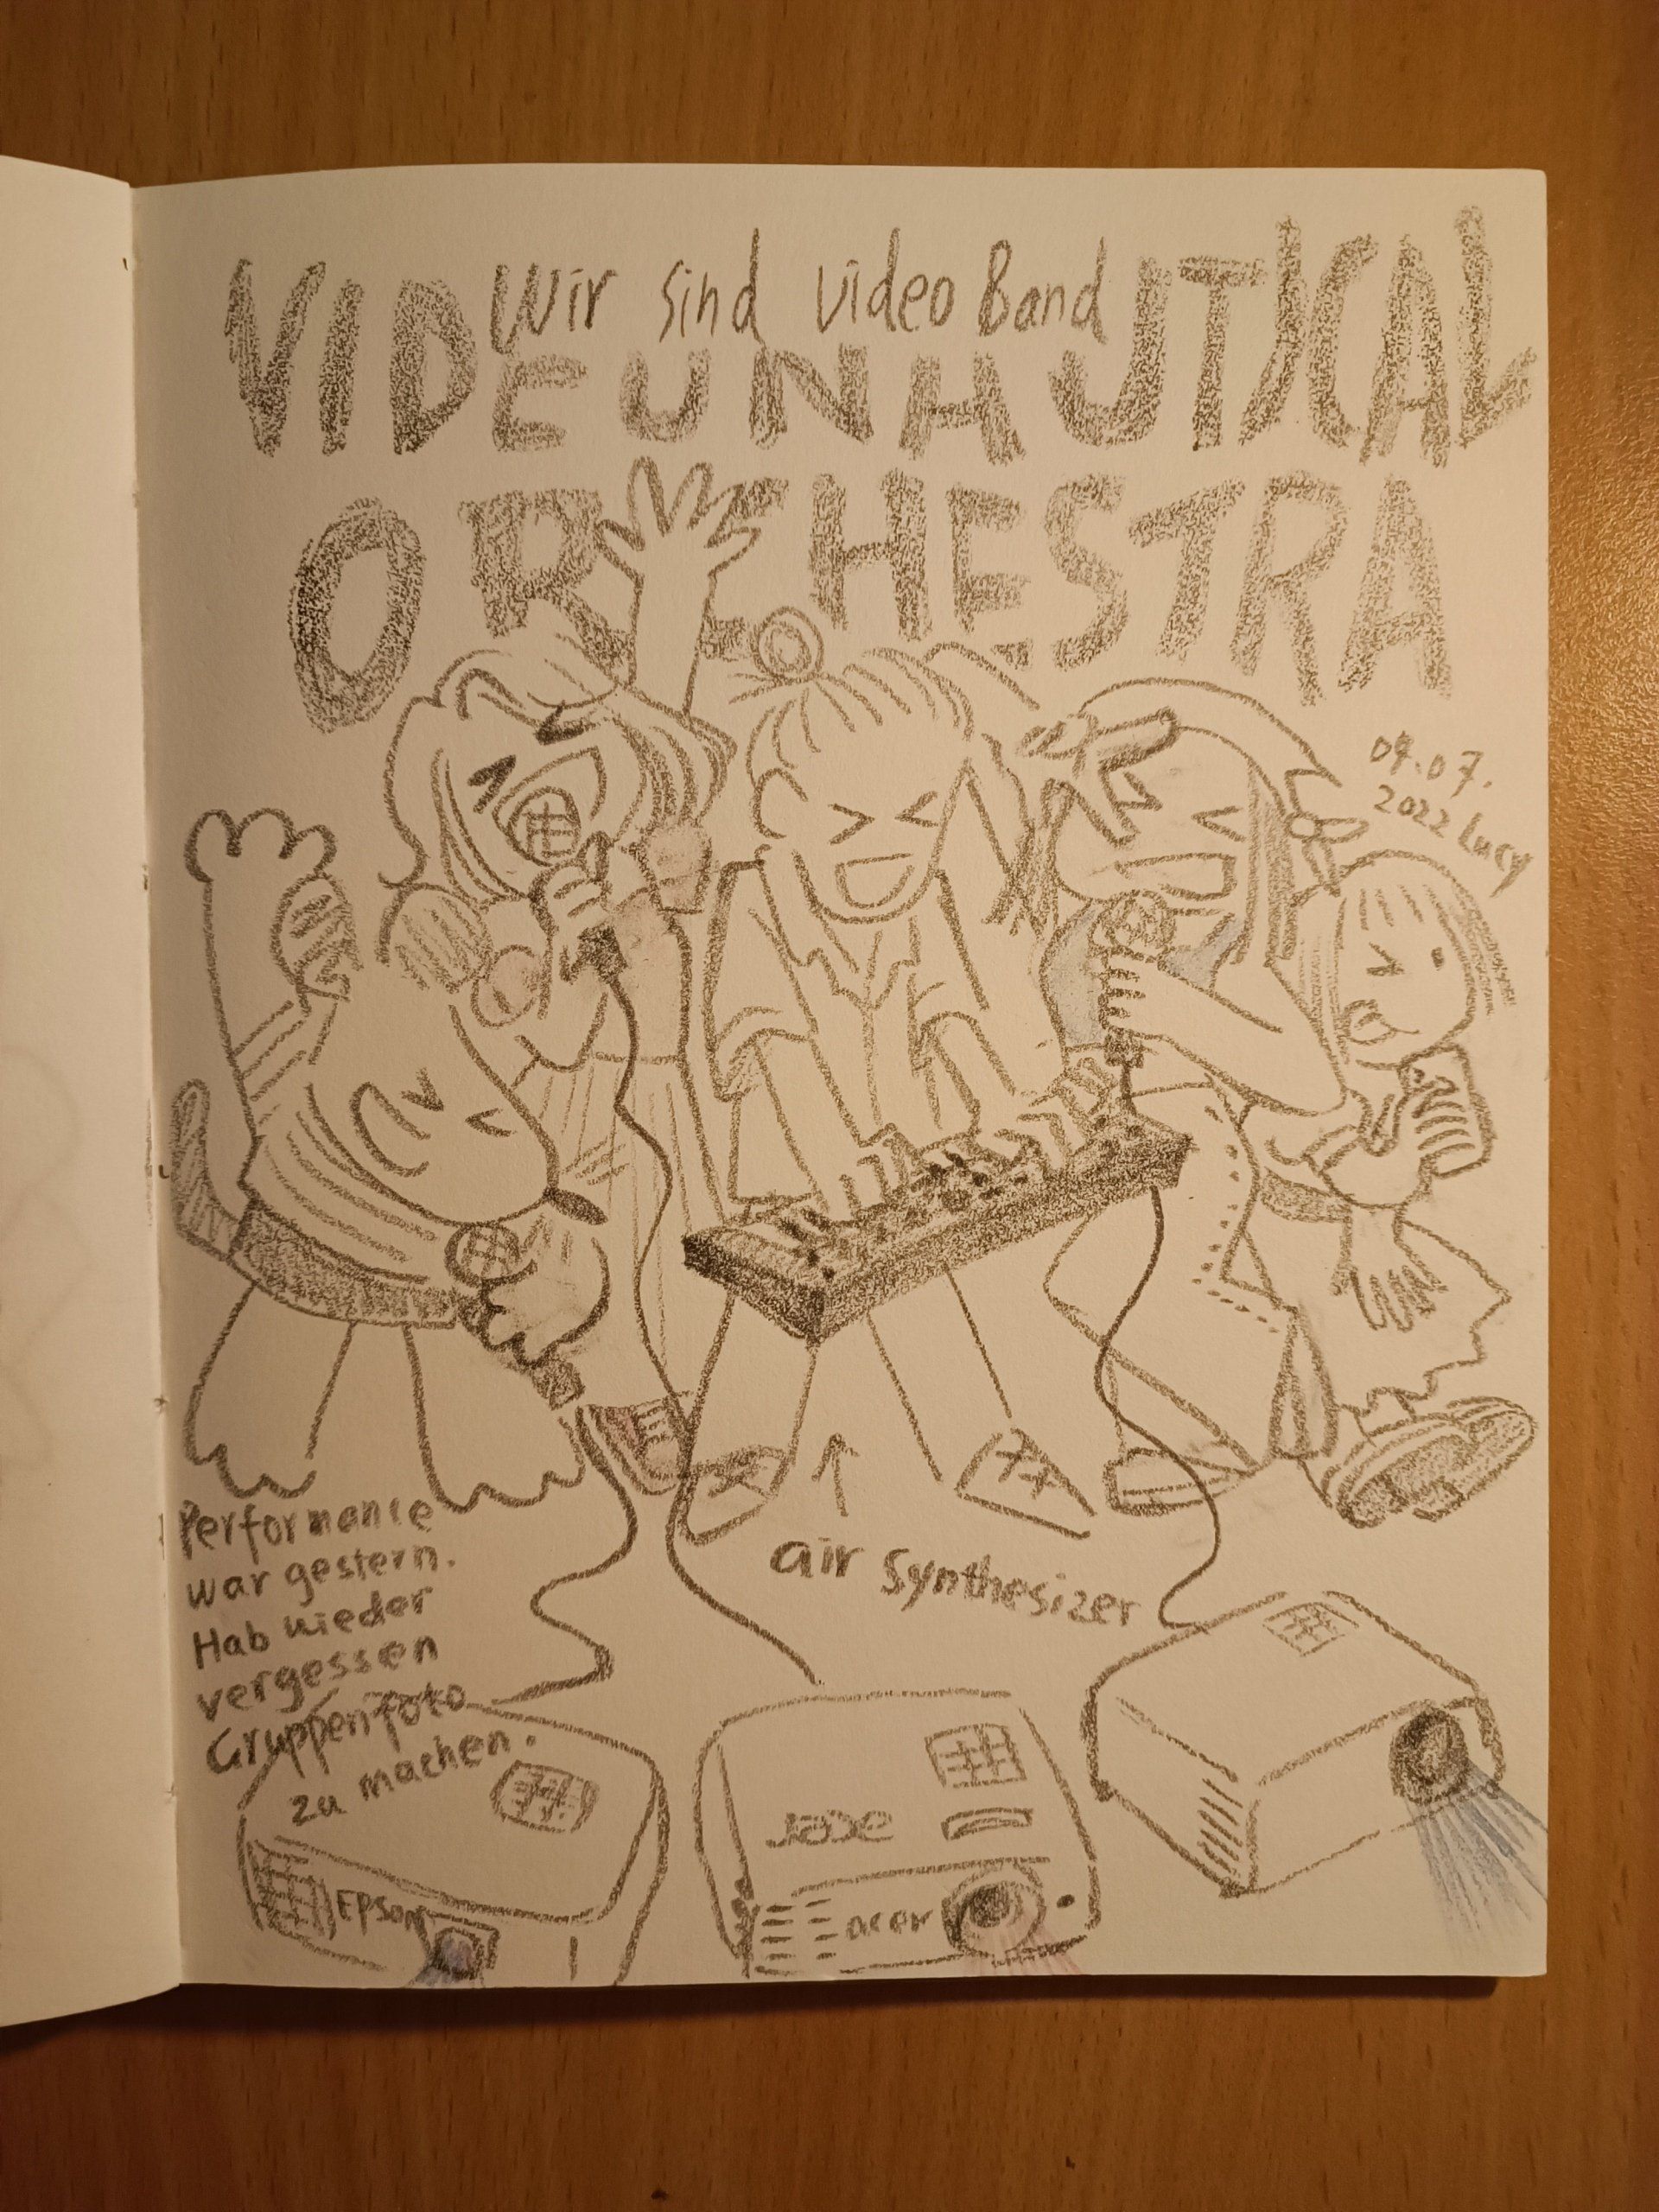 Wir sind video Band
VIDEUNAUTICAL
ORCHESTRA
09.07.
2022 Lucy
air synthesizer
Performance
war gestern.
Hab wieder
vergessen
Gruppenfoto
zu machen.
EPSON
acer